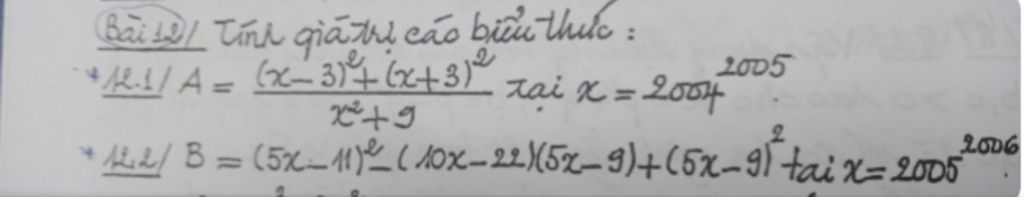 Bài 12/ Tính giá trị các biểu thức :
* 12.1/ A = \frac{(x-3)^2+(x+3)^2}{x^2+9} tại x = 2004^{2005}.
* 12.2/ B = (5x-11)^2-(10x-22)(5x-9)+(5x-9)^2 tại x = 2005^{2006}.